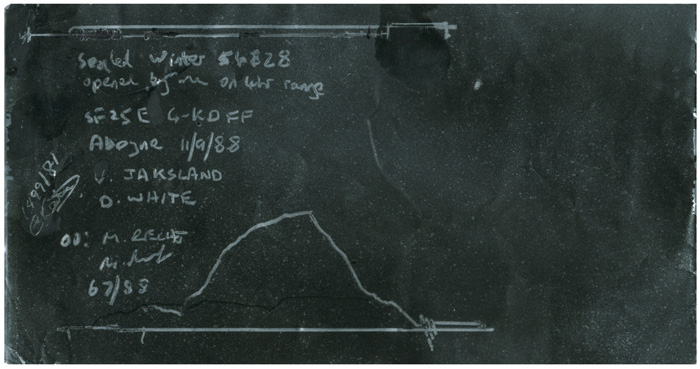 Sealed Winter 54828
opened by me on 4hr range
SF25E G-KDFF
Aboyne 11/9/88
V. JAKSLAND
D. WHITE
OO: M.
67/88